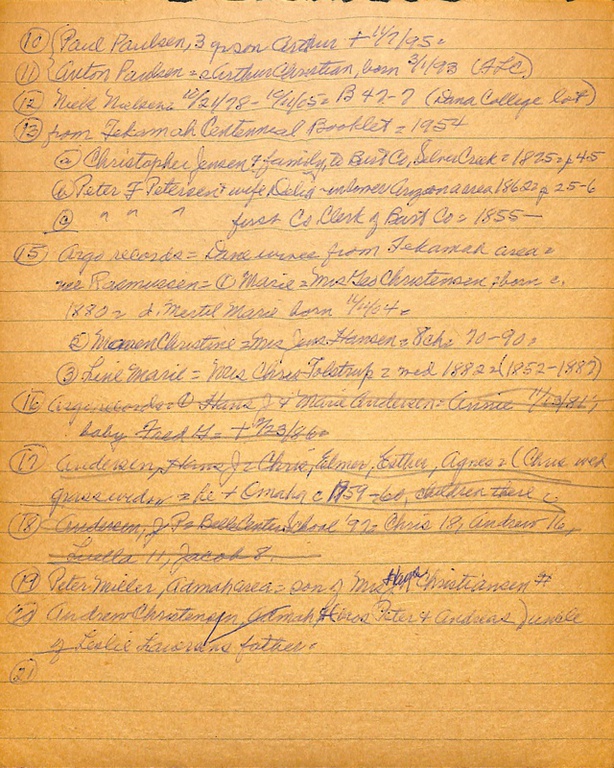 (10) Paul Paulsen, 3 gr son Arthur + 11/7/95 =
(11) Anton Paulsen = Arthur Christian, born 3/1/93 (ALC)
(12) Niels Nielsen = 10/24/78 - 10/11/05 = B 47-7 (Dana College lot)
(13) from Tekamah Centennial Booklet = 1954
(a) Christopher Jensen & family, to Burt Co, Silver Creek = 1875 = p 45
(b) Peter F Petersen & wife area 1862 = p 25-6
(c) " " " first Co Clerk of Burt Co = 1855 -
(15) Argo records = Dane wives from Tekamah area =
nee Rasmussen = (1) Marie = Mrs Geo Christensen = born c.
1880 = d. Mertil Marie born 11/4/04 =
(2) Maren Christine = Mrs Jens Hansen = 8 ch = 70-90 =
(3) Line Marie = Mrs Chris Tolstrup = wed 1882 = (1852-1887)
(16) Argo records = (1) Hans J & Marie Andersen = Annie
baby Fred G = + 23/86 =
(17) Andersen, Hans J = Chris, Elmer, Esther, Agnes = (Chris wed
grass widow = he + Omaha c 1959-60, children there =
(18) Andersen, J P = Belle Center School '97 = Chris 18, Andrew 16,
Luella 11, Jacob 8.
(19) Peter Miller, Admah area = son of Mrs Hans Christiansen #
(20) Andrew Christensen, Admah (bros Peter & Andreas) uncle
of Leslie father =
(21)